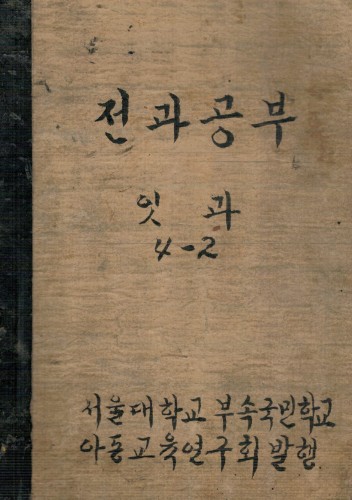 전과공부
잇 과
4-2
서울대학교 부속국민학교
아동교육연구회 발행